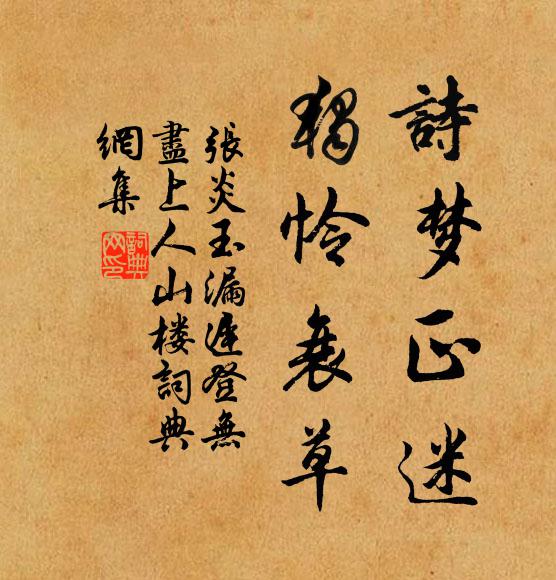 詩梦正迷
獨怜衰草
張炎玉漏遲登無
盡上人山楼詞典
網集
詞典網印